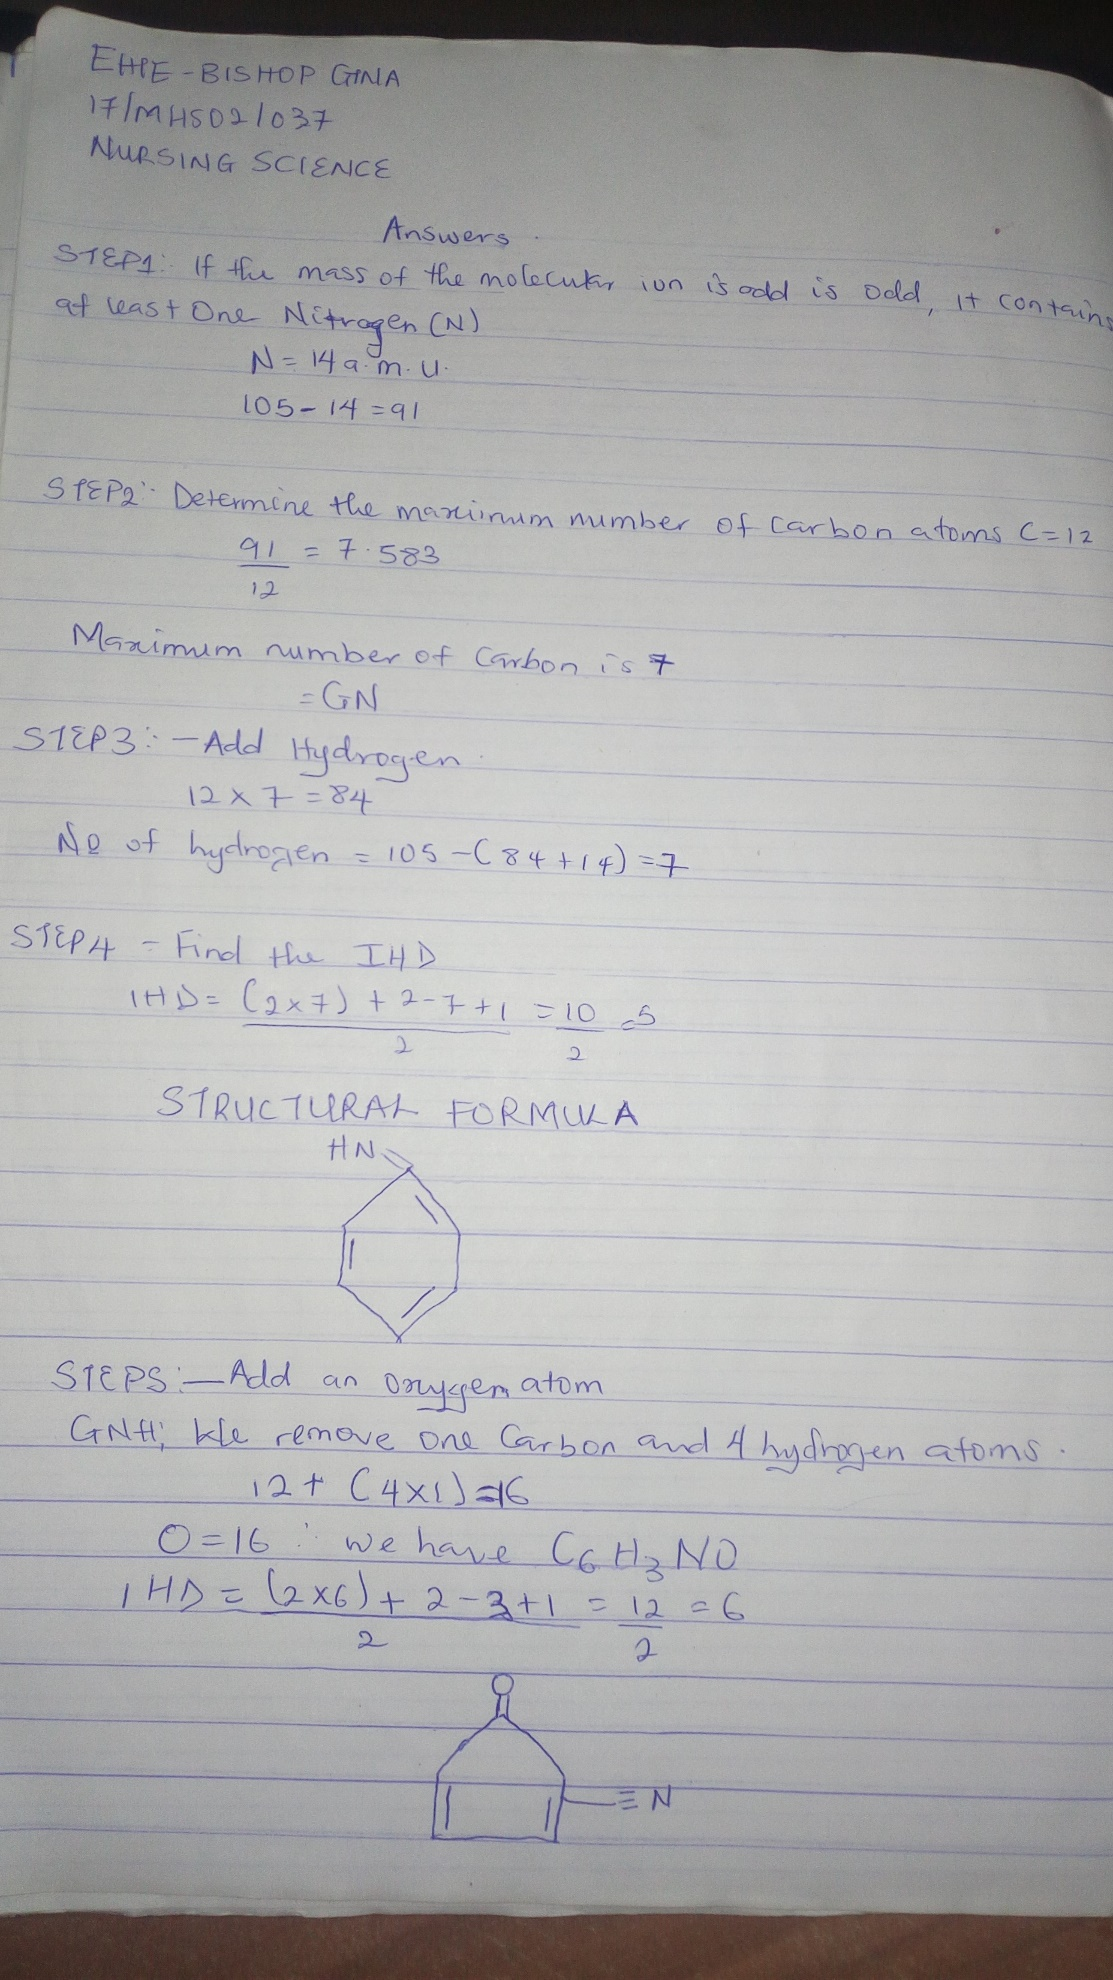 EHPE-BISHOP GINA
17/MHS02/037
NURSING SCIENCE
Answers.
STEP1:- If the mass of the molecular ion is odd is odd, it contains
at least One Nitrogen (N)
N = 14 a.m.u.
105 - 14 = 91
STEP2:- Determine the maximum number of carbon atoms C=12
91 = 7.583
12
Maximum number of Carbon is 7
= C7N
STEP3:- Add Hydrogen.
12 x 7 = 84
No of hydrogen = 105 - (84 + 14) = 7
STEP4 - Find the IHD
IHD = (2x7) + 2-7+1 = 10 = 5
2 2
STRUCTURAL FORMULA
HN
STEP5:- Add an oxygen atom
C7NH7; We remove one Carbon and 4 hydrogen atoms.
12 + (4x1) = 16
O = 16 ∴ we have C6H3NO
IHD = (2x6) + 2-3+1 = 12 = 6
2 2
O
≡N